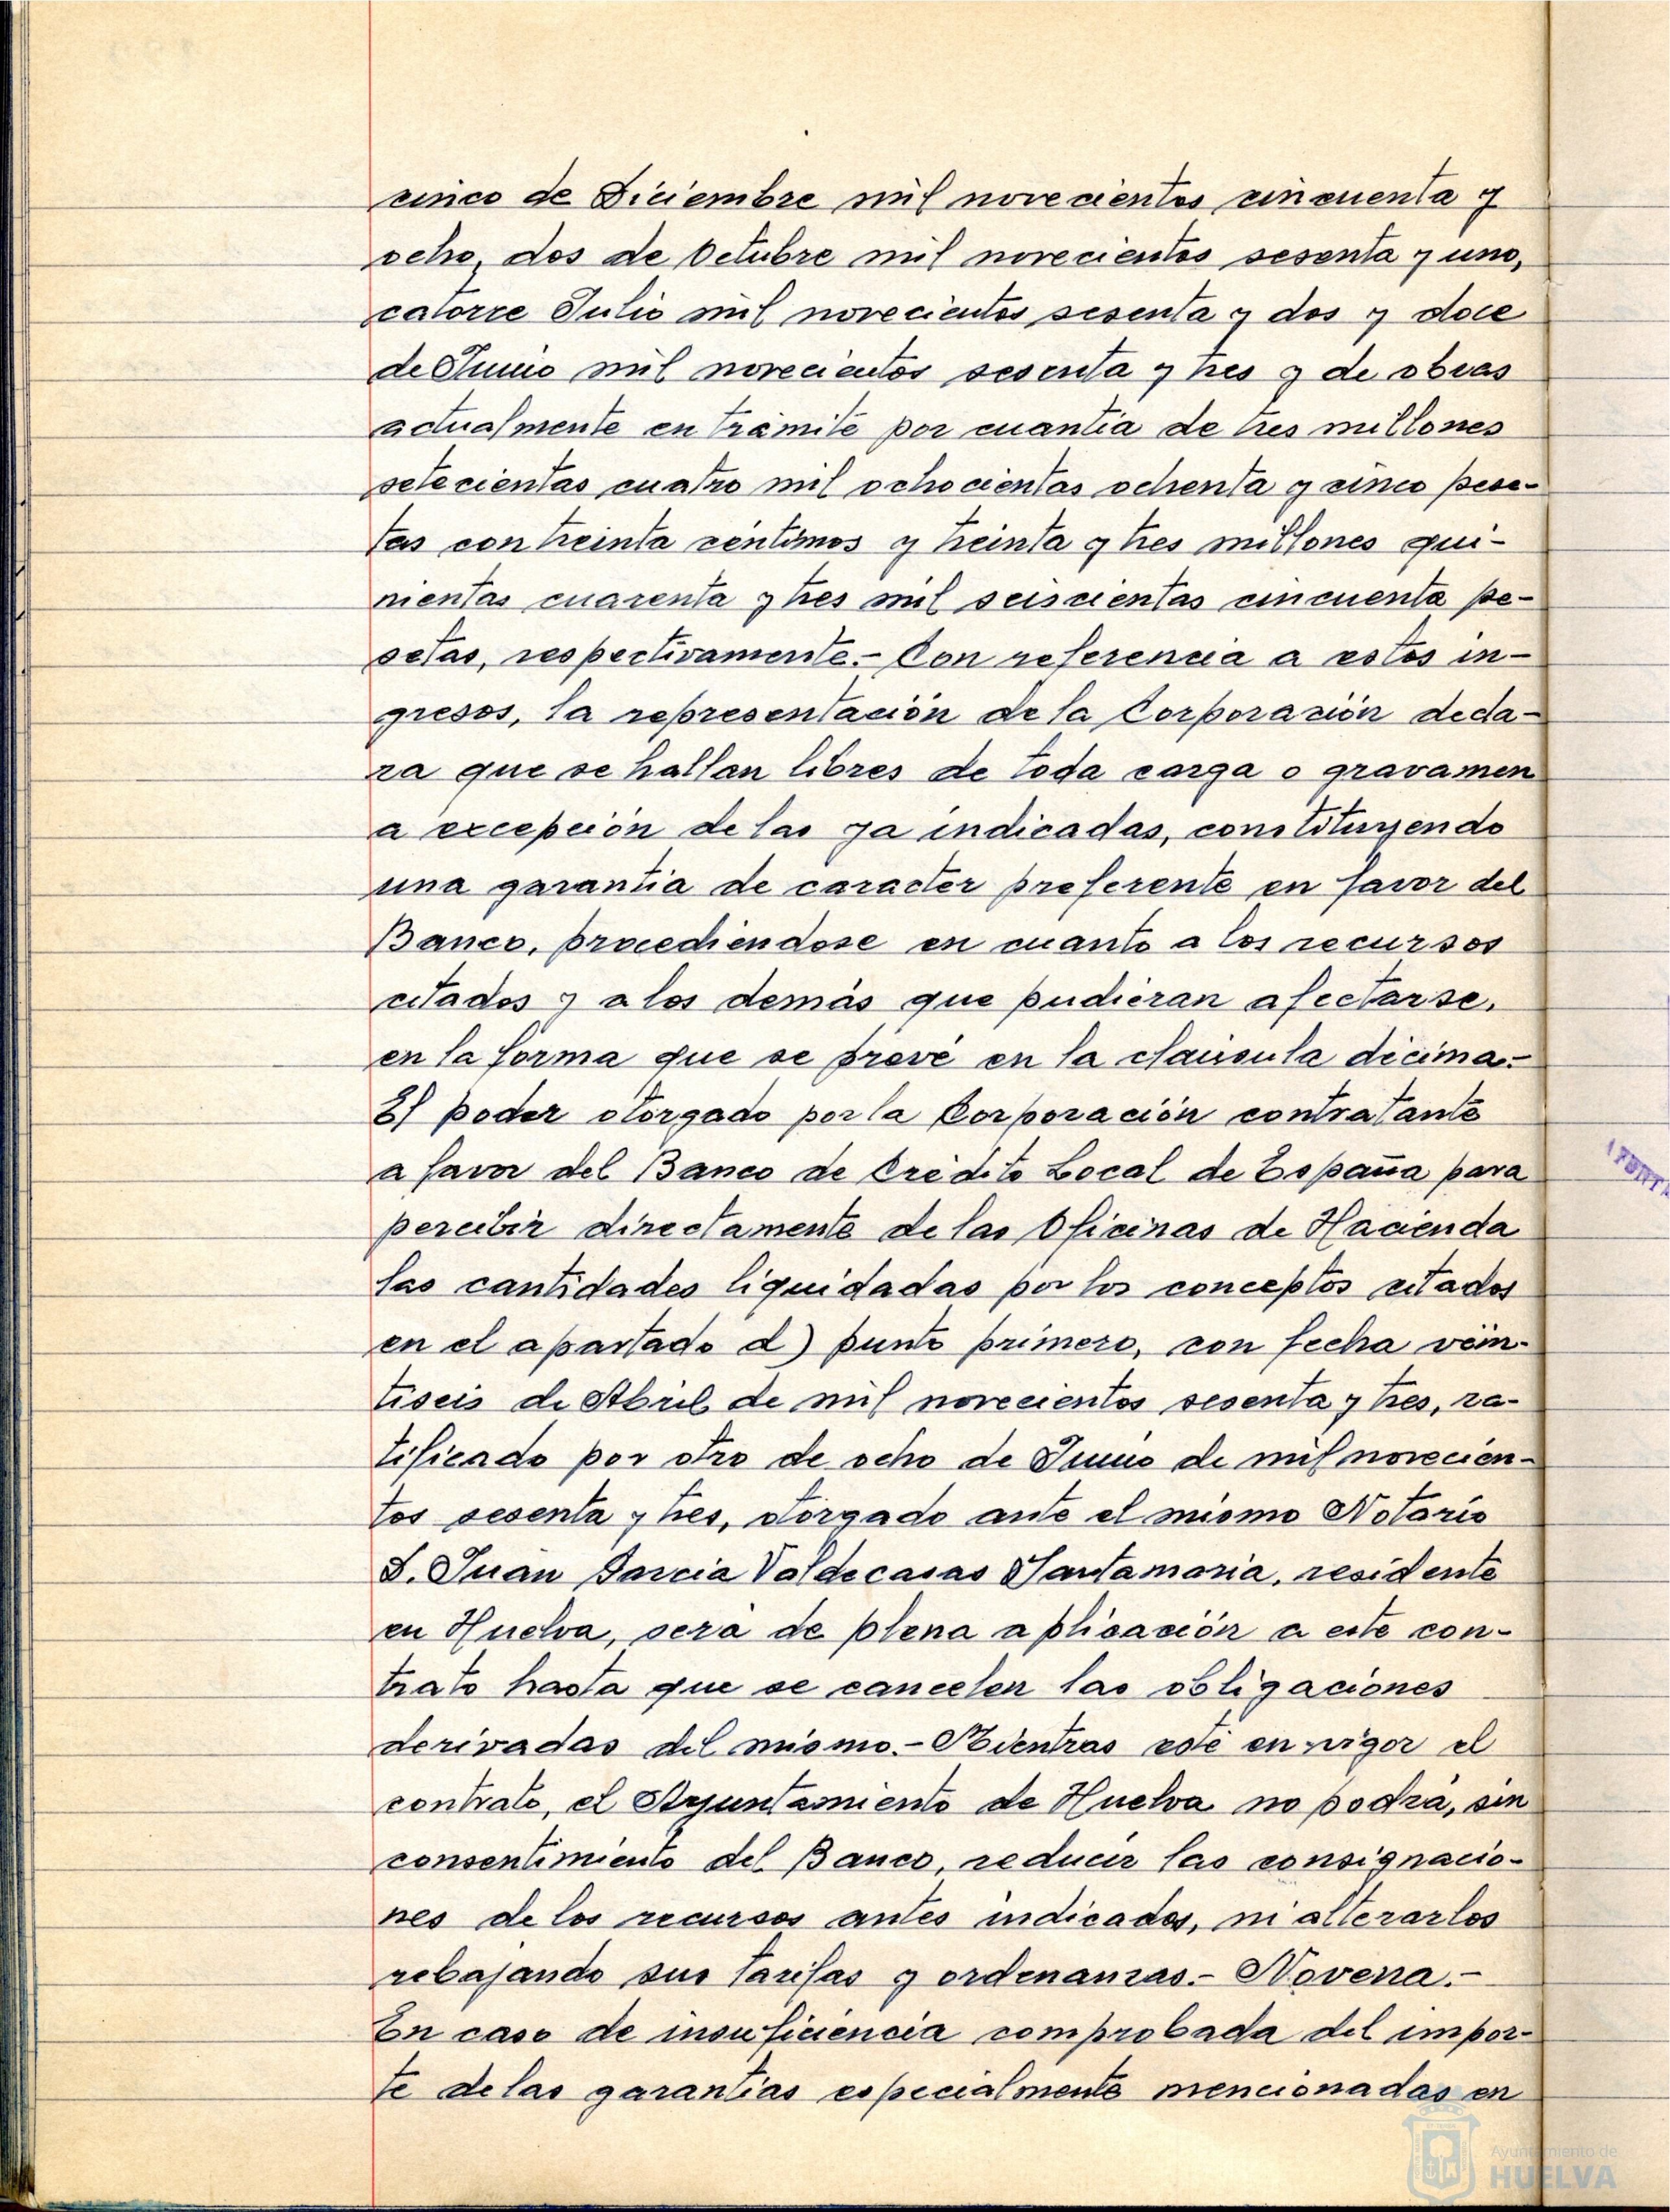 cinco de Diciembre mil novecientos cincuenta y
ocho, dos de Octubre mil novecientos sesenta y uno,
catorce Julio mil novecientos sesenta y dos y doce
de Junio mil novecientos sesenta y tres y de obras
actualmente en trámite por cuantía de tres millones
setecientas cuatro mil ochocientas ochenta y cinco pese-
tas con treinta céntimos y treinta y tres millones qui-
nientas cuarenta y tres mil seiscientas cincuenta pe-
setas, respectivamente.- Con referencia a estos in-
gresos, la representación de la Corporación decla-
ra que se hallan libres de toda carga o gravamen
a excepción de las ya indicadas, constituyendo
una garantía de caracter preferente en favor del
Banco, procediendose en cuanto a los recursos
citados y a los demás que pudieran afectarse,
en la forma que se prevé en la claúsula décima.-
El poder otorgado por la Corporación contratante
a favor del Banco de Crédito Local de España para
percibir directamente de las Oficinas de Hacienda
las cantidades liquidadas por los conceptos citados
en el apartado d) punto primero, con fecha vein-
tiseis de Abril de mil novecientos sesenta y tres, ra-
tificado por otro de ocho de Junio de mil novecien-
tos sesenta y tres, otorgado ante el mismo Notario
D. Juan Garcia Valdecasas Santamaria, residente
en Huelva, será de plena aplicación a este con-
trato hasta que se cancelen las obligaciones
derivadas del mismo.- Mientras esté en vigor el
contrato, el Ayuntamiento de Huelva no podrá, sin
consentimiento del Banco, reducir las consignacio-
nes de los recursos antes indicados, ni alterarlos
rebajando sus tarifas y ordenanzas.- Novena.-
En caso de insuficiencia comprobada del impor-
te de las garantías especialmente mencionadas en
Ayuntamiento de
HUELVA